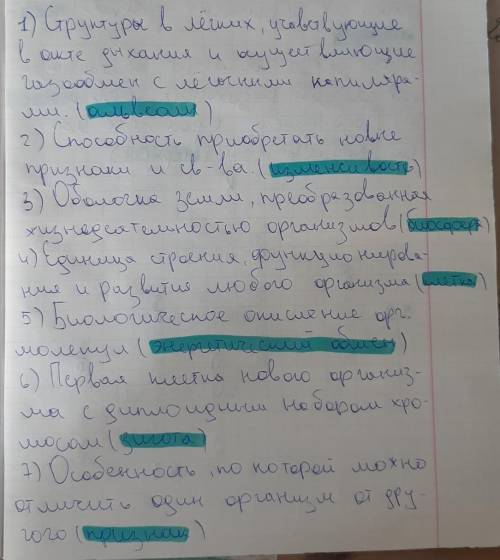 1) Структуры в лёгких, учавствующие
в акте дыхания и осуществляющие
газообмен с лёгочными капиляра-
ми. (альвеолы)
2) Способность приобретать новые
признаки и св-ва. (изменчивость)
3) Оболочка земли, преобразованная
жизнедеятельностью организмов (биосфера)
4) Единица строения, функционирова-
ния и развития любого организма (клетка)
5) Биологическое окисление орг.
молекул (энергетический обмен)
6) Первая клетка нового организ-
ма с диплоидным набором хро-
мосом (зигота)
7) Особенность, по которой можно
отличить один организм от дру-
гого (признак)